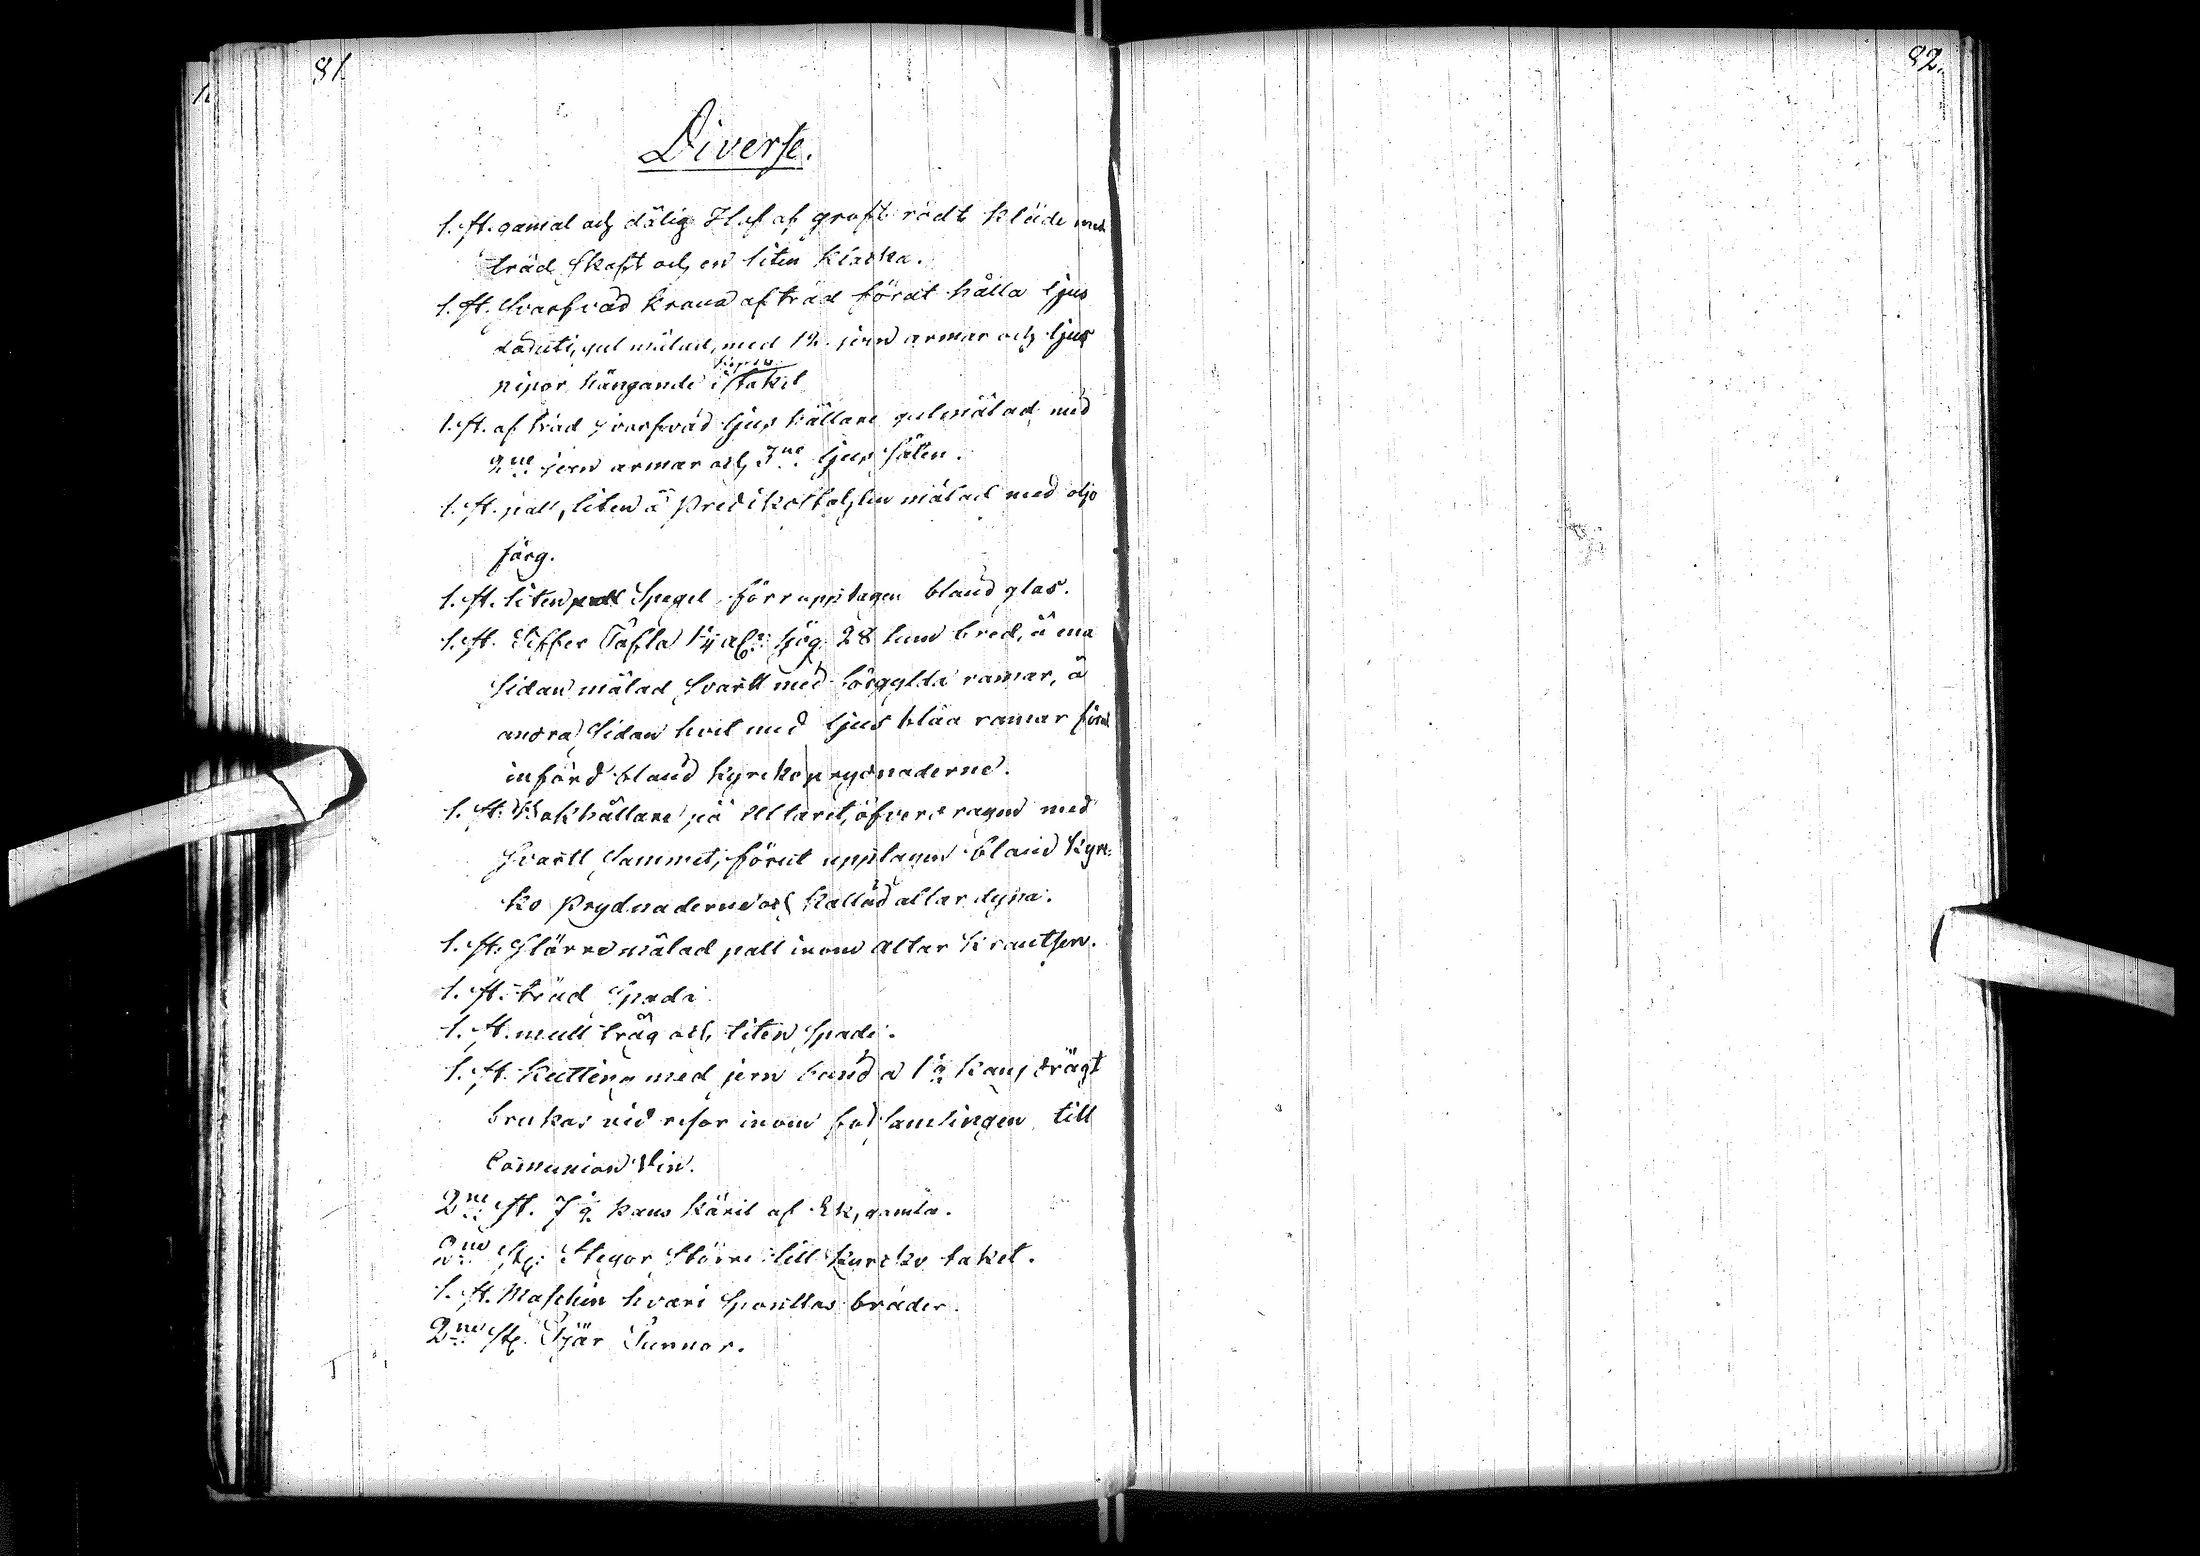 81.
82.
Diverse.
1. st. gamal och dålig Håf af groft rödt kläde med
träd skaft och en liten klacka.
1. st. Svarfvad krona af träd förut hålla ljus
gul målad, med 12. jern armar och ljus
pipor hängande i taket
1. st. af träd svarfvad ljus hållare gulmålad med
2ne jern armar och 3ne ljus
1. st. pall, liten å Predikostohlen målad med oljo
färg.
1. st. liten Spegel förr upptagen bland glas.
1. st. Siffer Tafla 1¼ aln hög 28 tum bred, å ena
Sidan målad Svartt med förgylda ramar, å
andra Sidan hvit med ljus blåa ramar förut
införd bland kyrkoprydnaderne.
1. st. Bokhållare på Altaret, öfverdragen med
Svartt Sammet, förut upptagen bland Kyr-
ko Prydnaderne och kallad altar dyna.
1. st. Större målad pall inom Altar Krantsen.
1. st. träd Spade
1. st. mull tråg och liten Spade.
1. st. Kutting med jern band a 1½ kans drägt
brukas vid resor inom församlingen till
Communion Vin.
2ne st. 7½ kans käril af Ek, gamla.
2ne st. Stegor Större till kyrcko taket.
1. st. Maschin hvari Spånttas bräder.
2ne st. Tjär Tunnor.